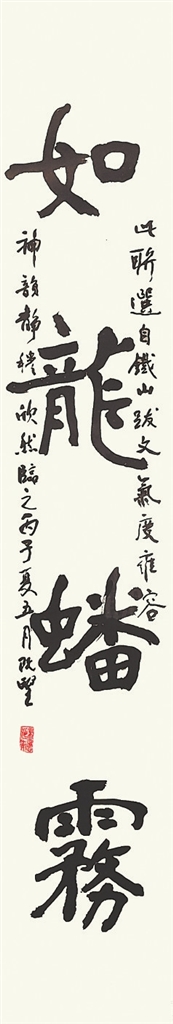 如龍蟠霧
此聯選自鐵山跋文氣度雍容
神韻靜穆欣然臨之丙子夏五月既望